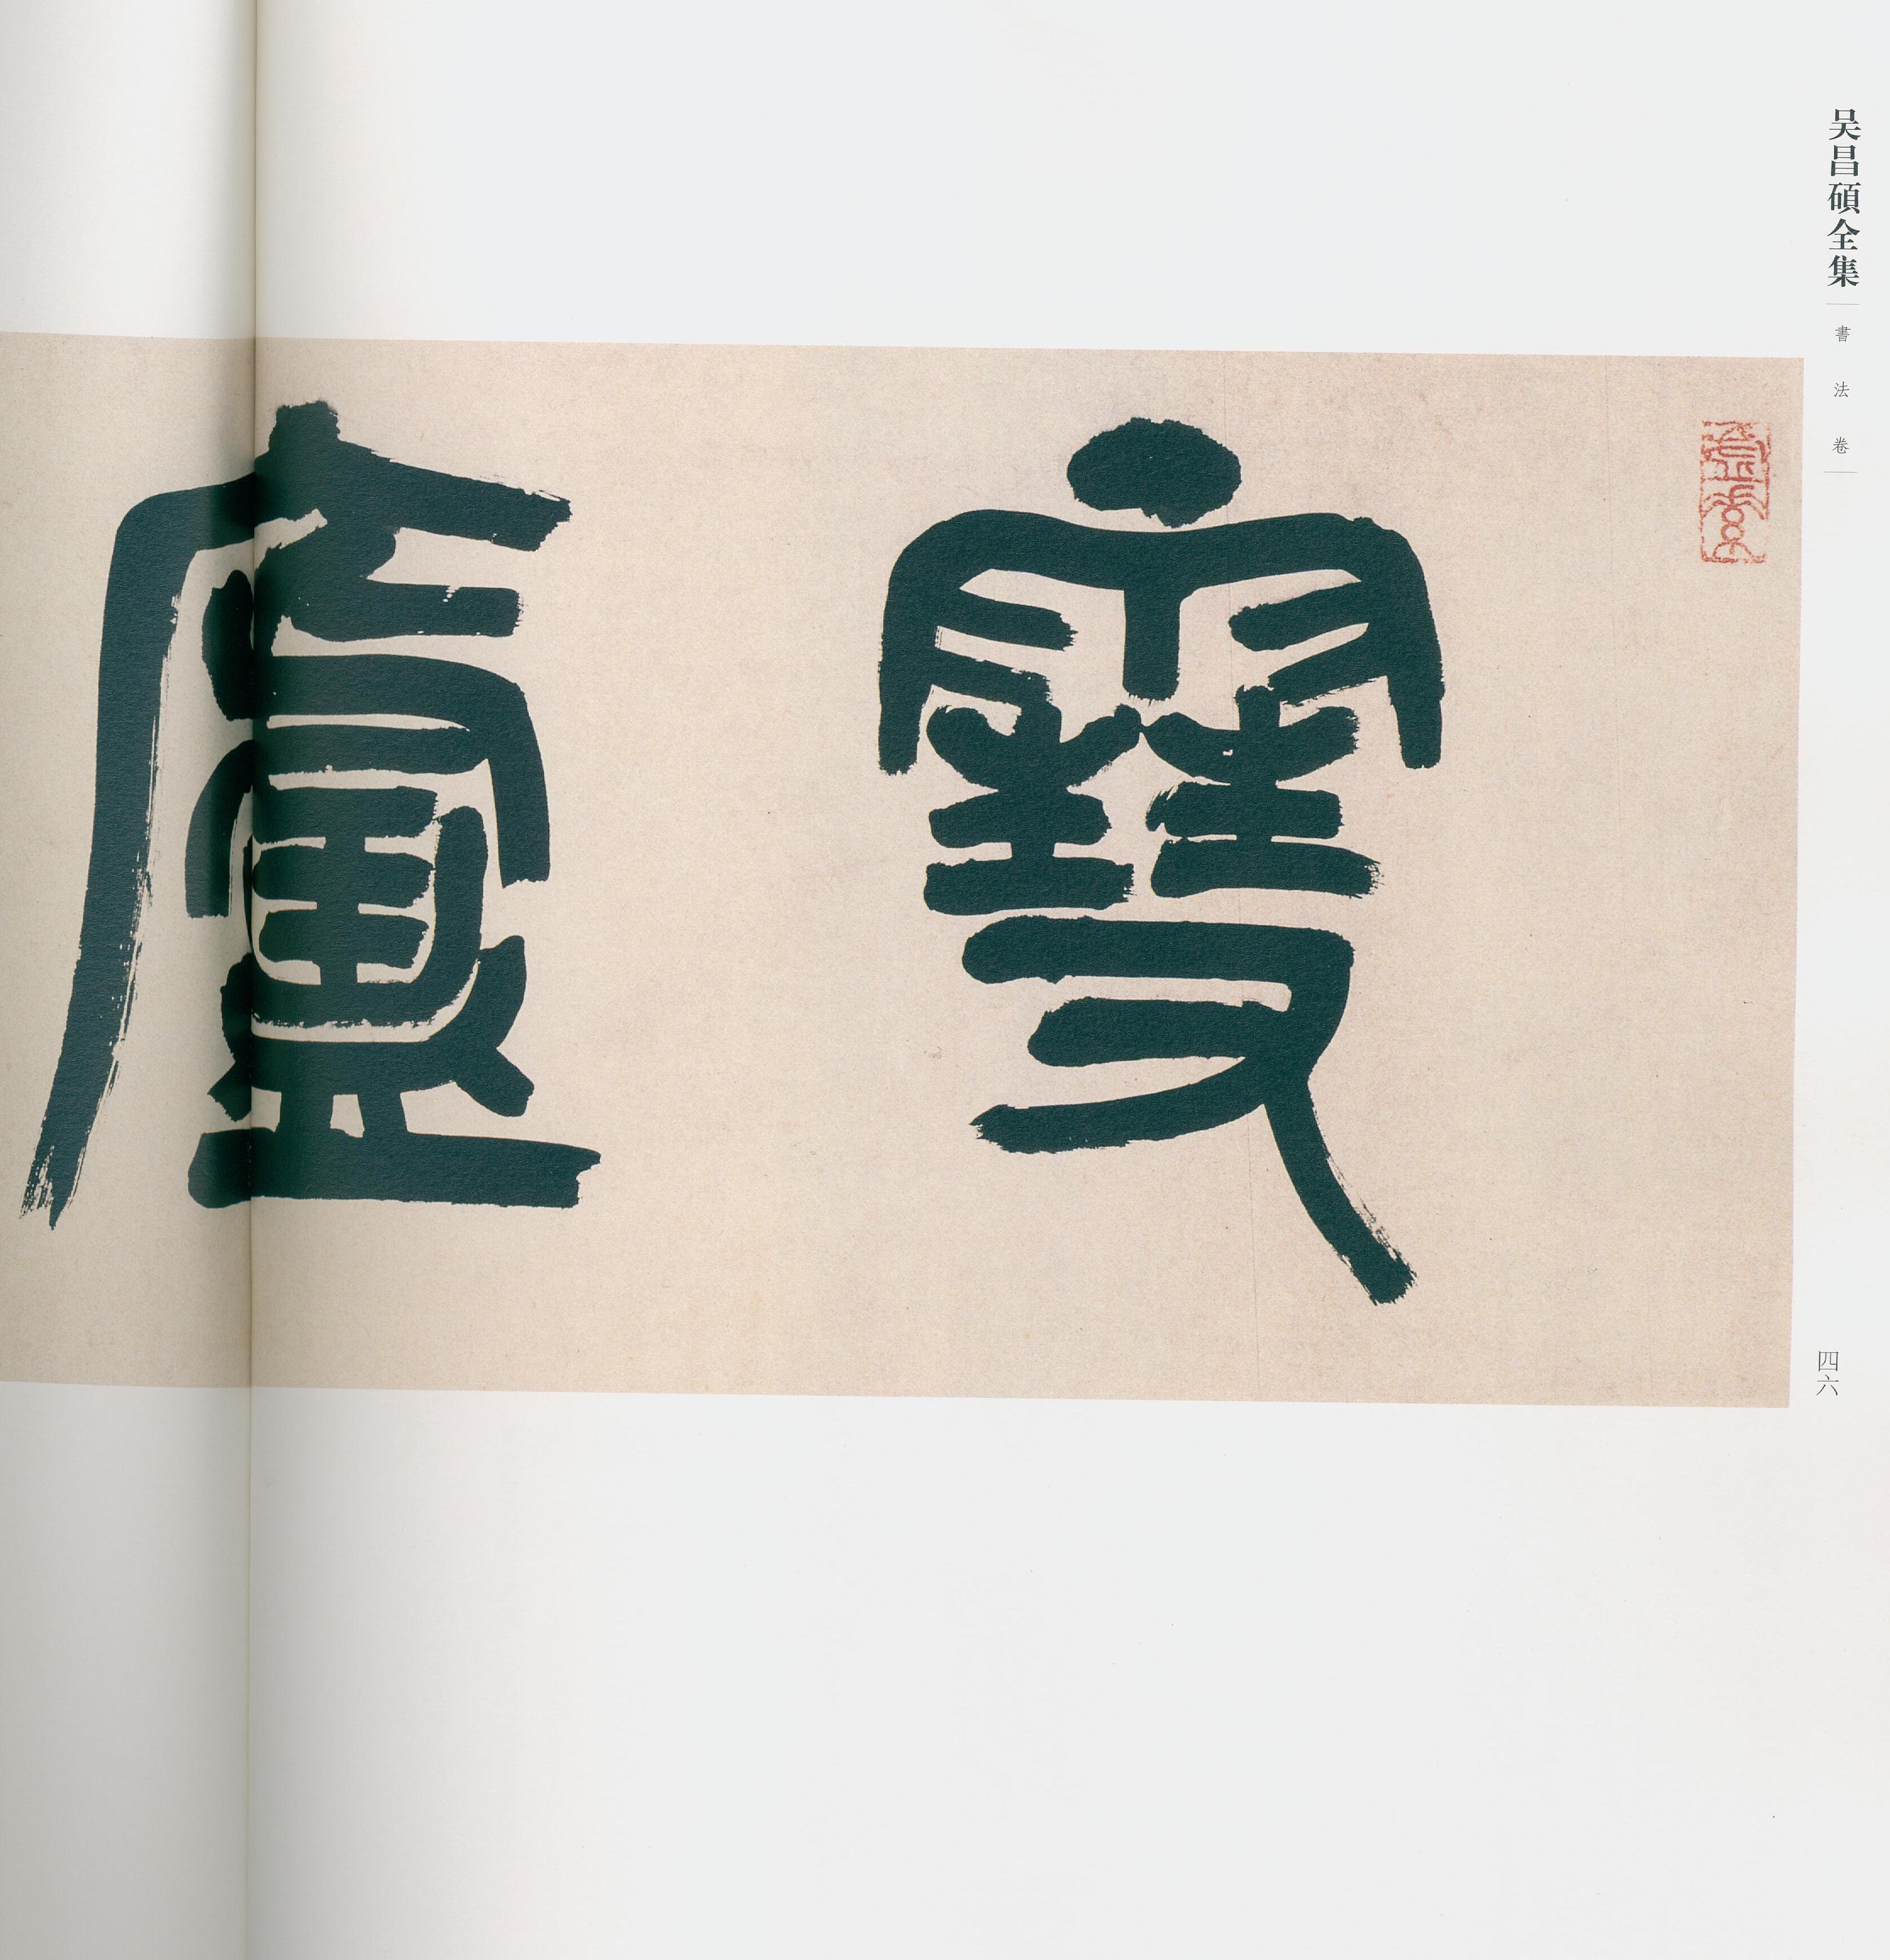 吴昌碩全集
書法卷
四六
雪廬